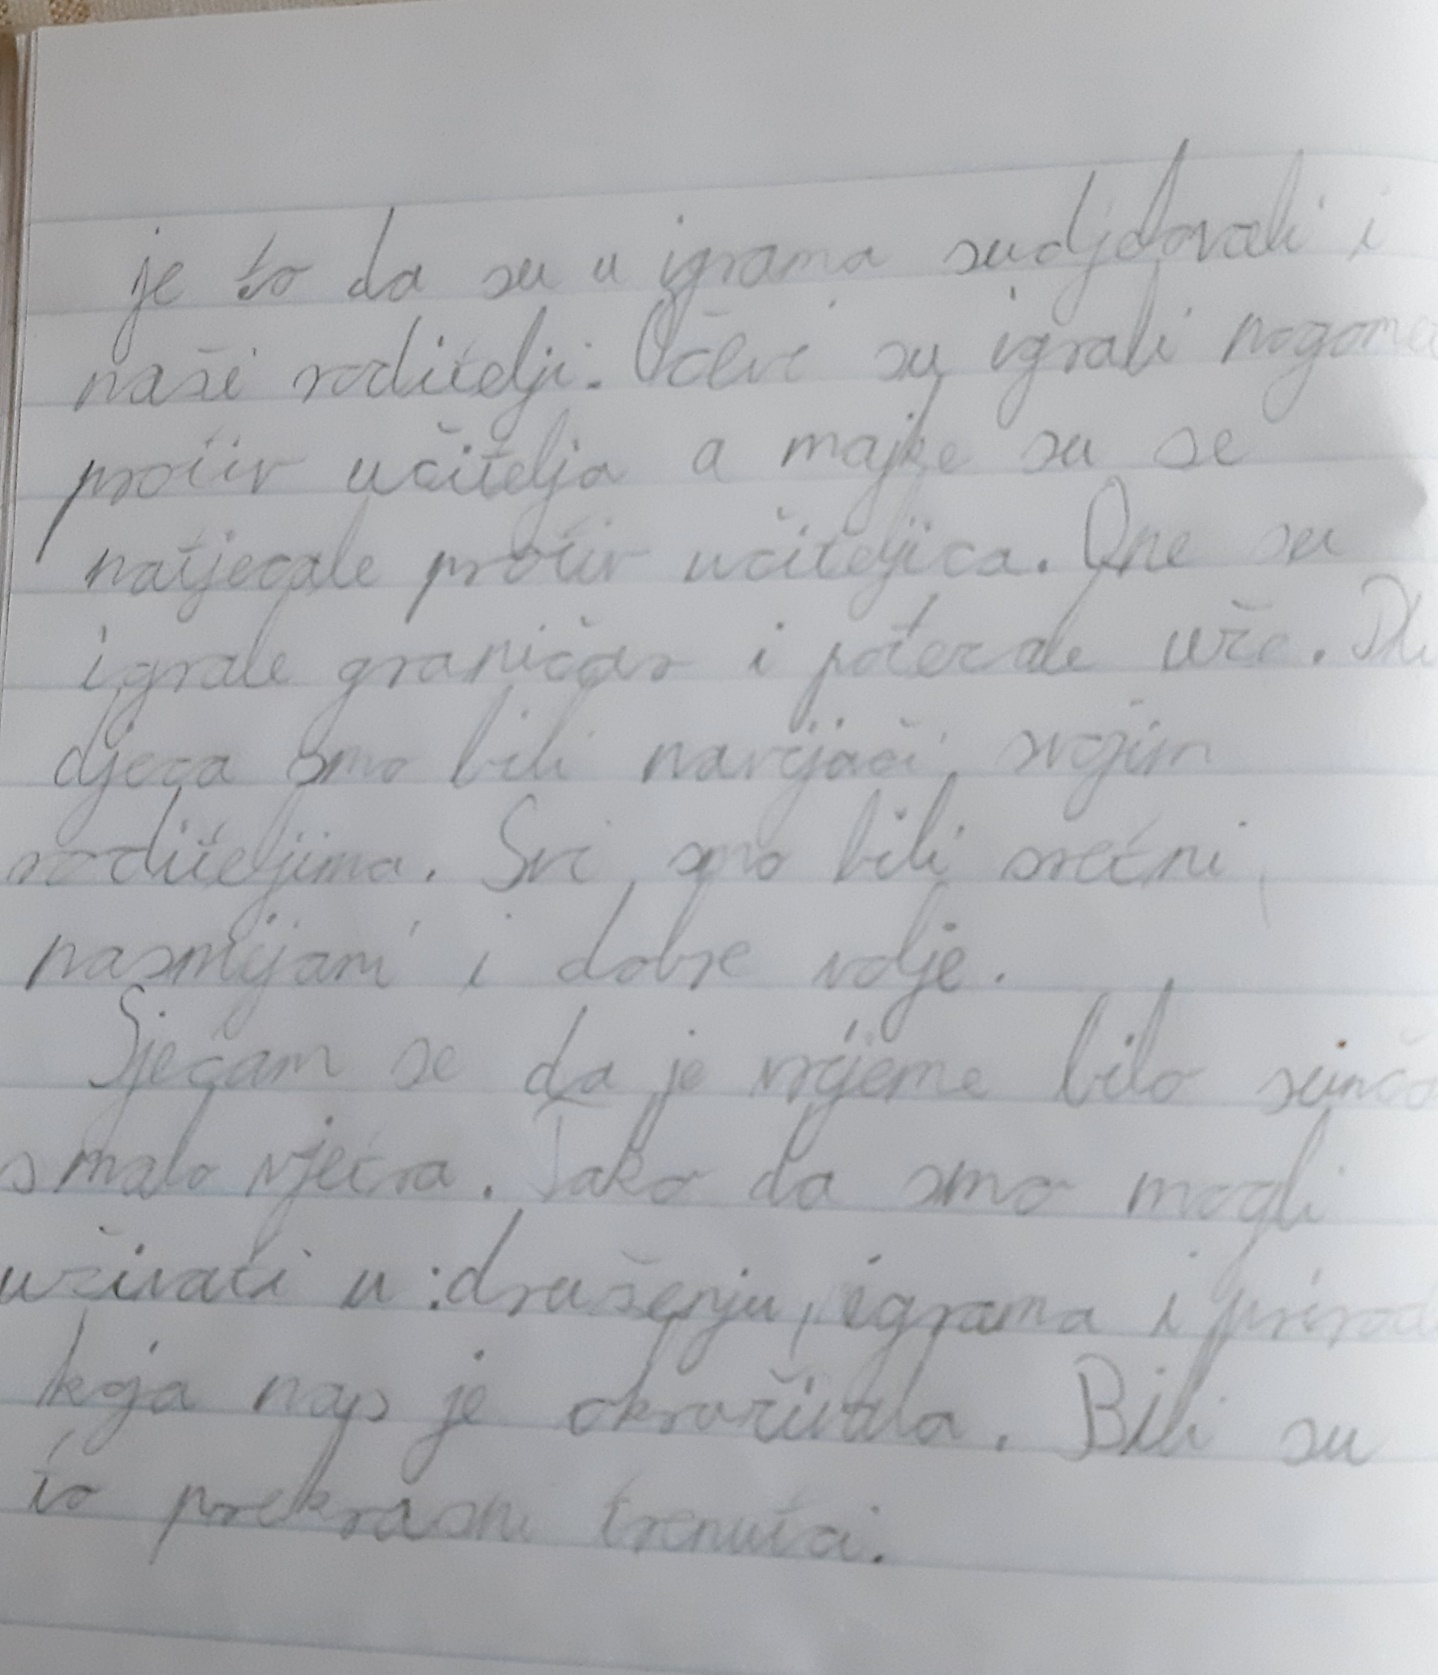 je to da su u igrama sudjelovali i
naši roditelji. Očevi su igrali nogome
protiv učitelja a majke su se
natjecale protiv učiteljica. One su
igrale graničar i potezale uže.
djeca smo bili navijači svojim
roditeljima. Svi smo bili srećni,
nasmijani i dobre volje.
Sječam se da je vrijeme bilo sunčo
s malo vjetra. Tako da smo mogli
uživati u: druženju, igrama i prirod
koja nas je okruživala. Bili su
to prekrasni trenutci.